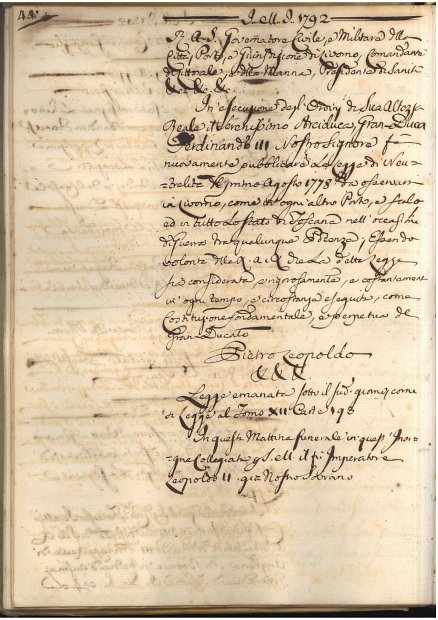 1792
Governatore Civile, e Militare della
Città, Porto, e Giurisdizione di Livorno, Comandante
Littorale, e della Marina, Presidente di Sanità
&c. &c. &c.
In esecuzione degl'Ordini di Sua Altezza
Reale il Serenissimo Arciduca Gran-Duca
Ferdinando III Nostro Signore fà
nuovamente pubblicare la Legge di Neu-
-tralità del primo Agosto 1778 da osservarsi
in Livorno, come in ogni altro Porto, e Scalo
ed in tutto lo Stato di Toscana nell'occasione
di Guerra tra qualunque Potenza; Essendo
volontà della R. A. S. che la detta Legge
sia considerata, e rigorosamente, e costantemente
in ogni tempo, e circostanza eseguita, come
Costituzione fondamentale, e perpetua del
Gran-Ducato
Pietro Leopoldo
&c &c &c
Legge emanata sotto il sud.º giorno, come
si Legge al Tomo XII Carte 198
In questa Mattina funerale in quest' Insi-
-gne Collegiata il fù Imperatore
Leopoldo II già Nostro Sovrano